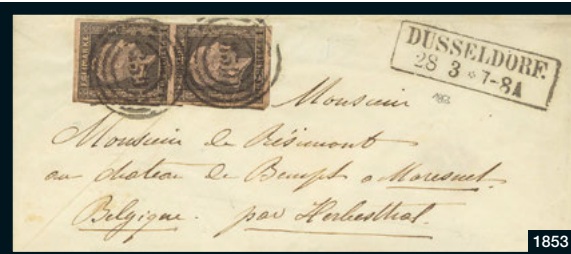 FREIMARKE
DUSSELDORF
28 3 * 7-8A
Monsieur
Monsieur de Résimont
au chateau de Bempt a Moresnet
Belgique. par Herbesthal.
1853